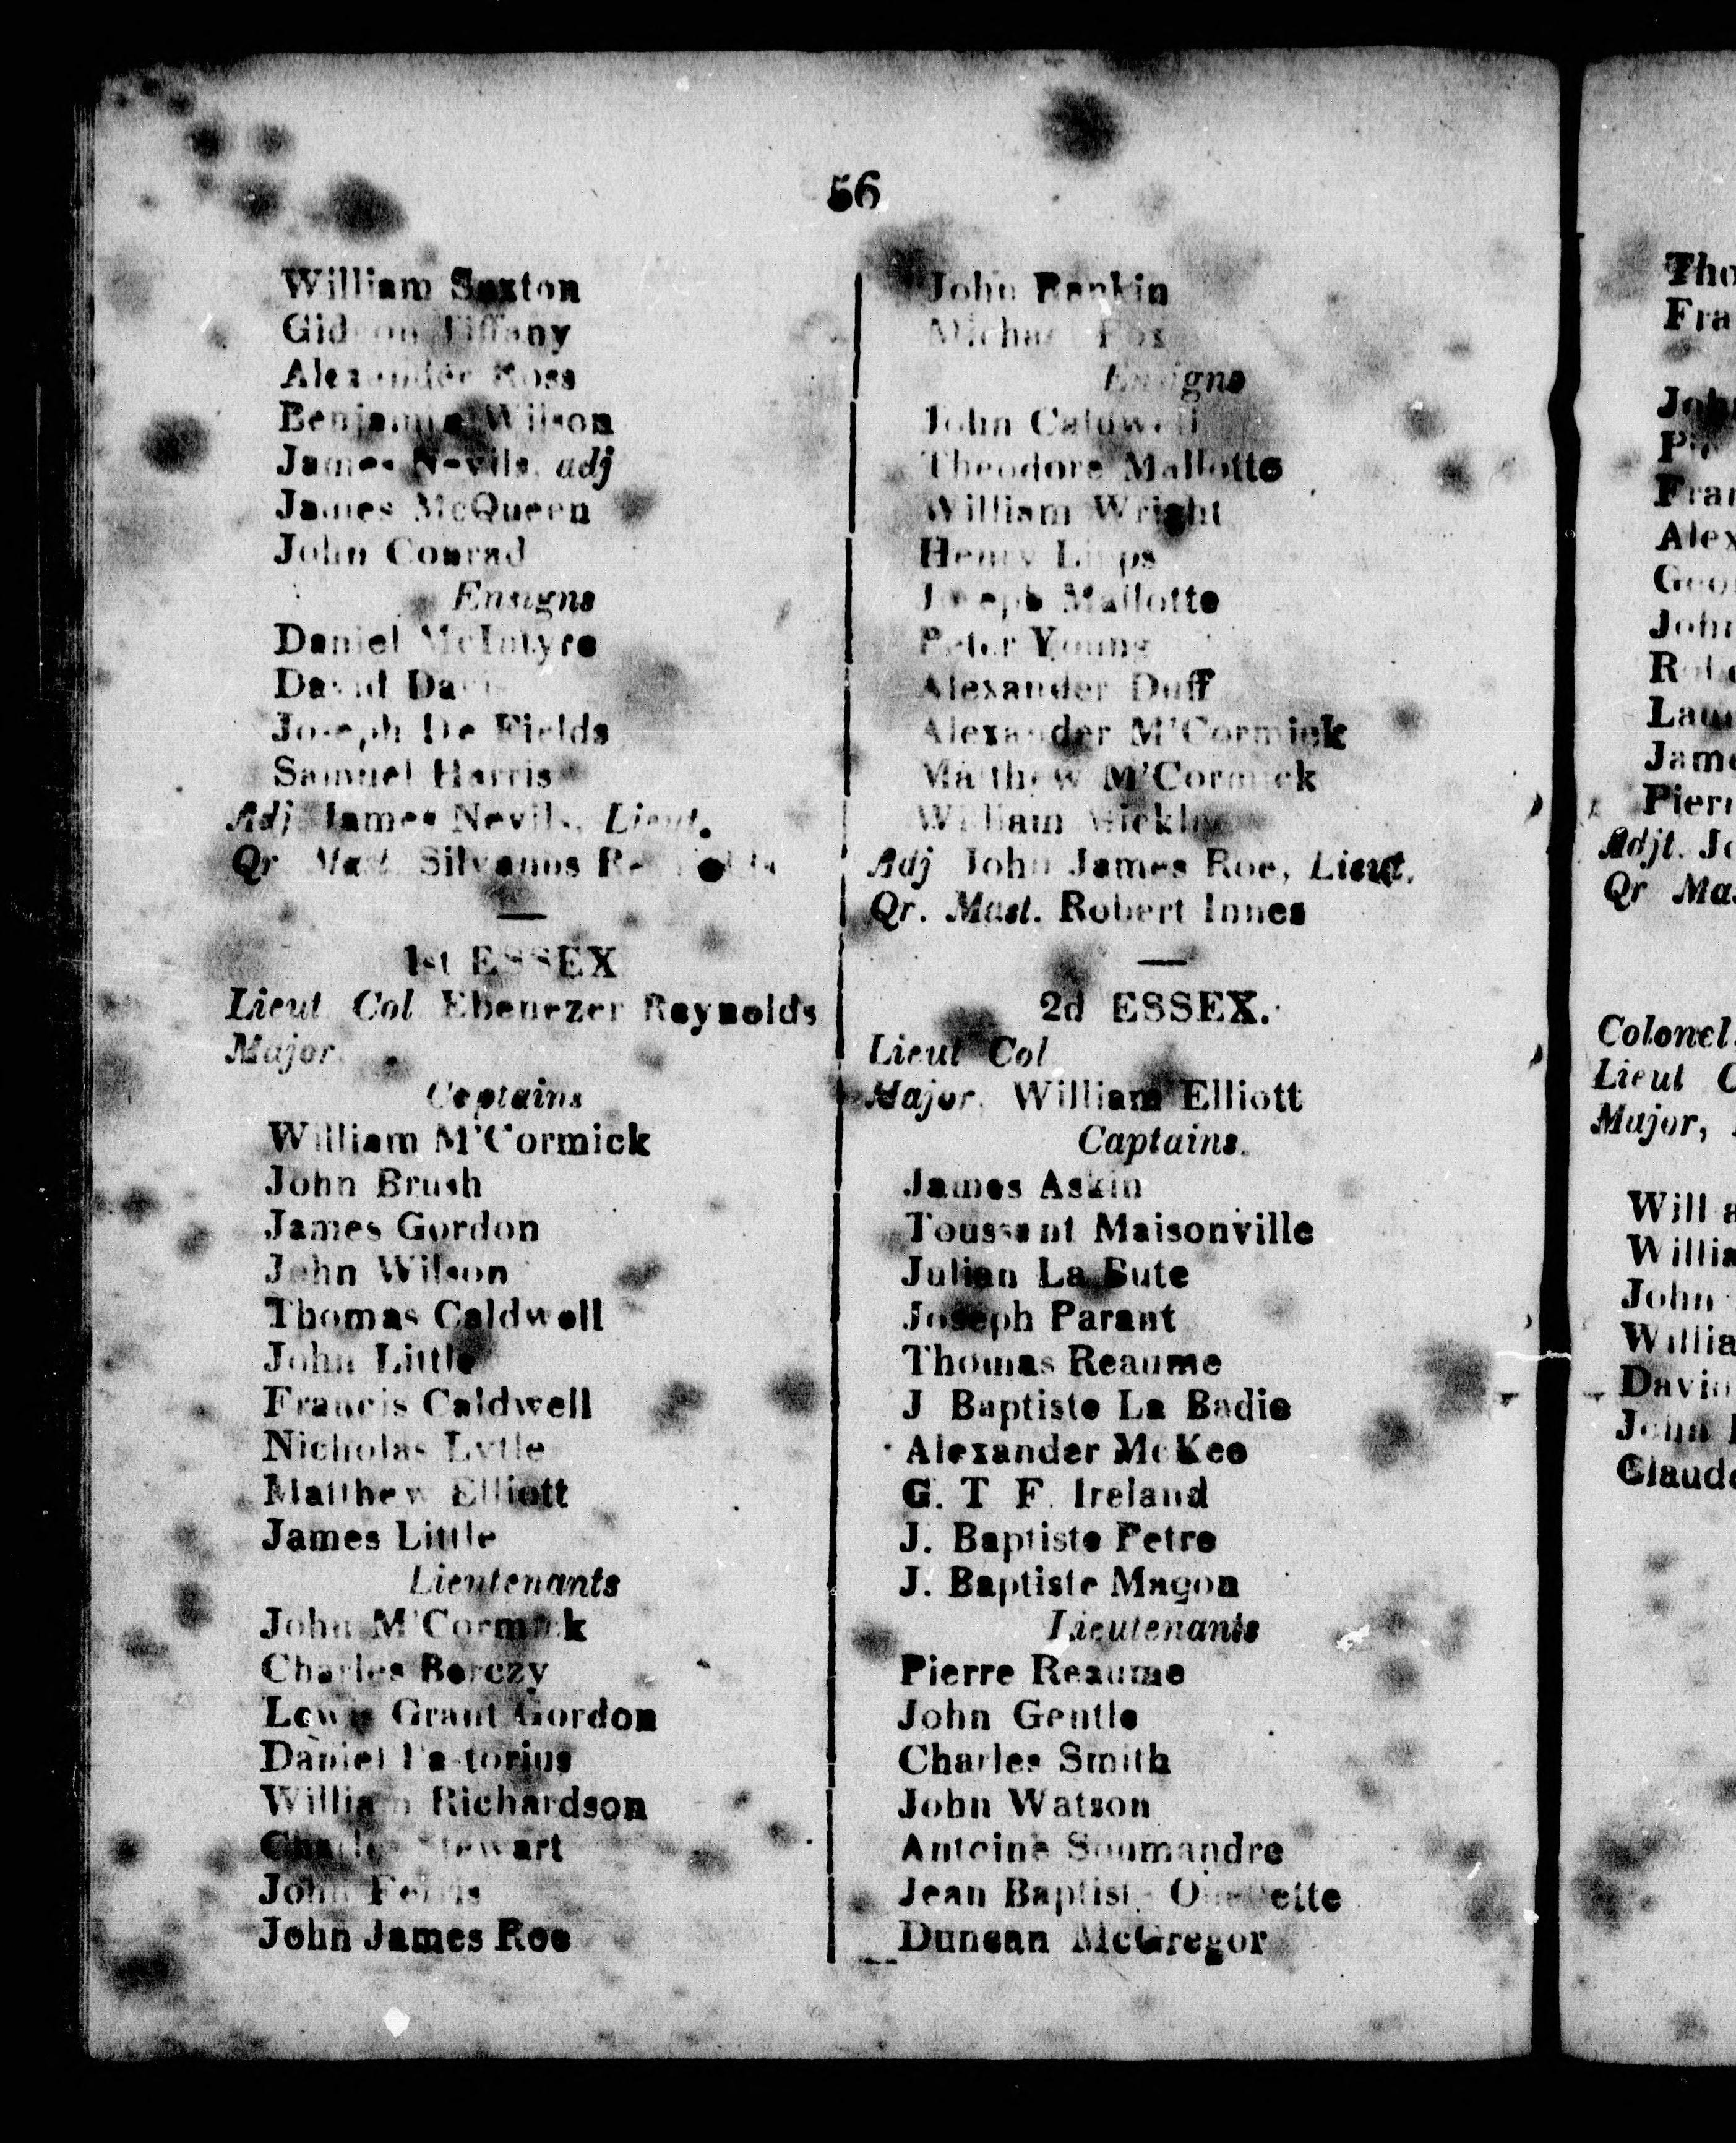 56
William Saxton
Gideon Tiffany
Alexander Ross
Benjamin Wilson
James Nevils, adj
James McQueen
John Conrad
Ensigns
Daniel McIntyre
David
Joseph De Fields
Samuel Harris
Adj James Nevils, Lieut.
Qr Mast. Silvanus
1st ESSEX
Lieut Col Ebenezer Reynolds
Major.
Captains
William M'Cormick
John Brush
James Gordon
John Wilson
Thomas Caldwell
John Little
Francis Caldwell
Nicholas Lytle
Matthew Elliott
James Little
Lieutenants
John M'Cormick
Charles Berczy
Lewis Grant Gordon
Daniel Pastorius
William Richardson
Charles Stewart
John
John James Roe
John Rankin
Michael Fox
Ensigns
John Caldwell
Theodore Mallotte
William Wright
Henry
Joseph Mallotte
Peter Young
Alexander Duff
Alexander M'Cormick
Matthew M'Cormick
William
Adj John James Roe, Lieut.
Qr. Mast. Robert Innes
2d ESSEX.
Lieut Col
Major. William Elliott
Captains.
James Askin
Toussant Maisonville
Julian La Bute
Joseph Parant
Thomas Reaume
J Baptiste La Badie
Alexander McKee
G. T F. Ireland
J. Baptiste Petre
J. Baptiste Magon
Lieutenants
Pierre Reaume
John Gentle
Charles Smith
John Watson
Antoine Soumandre
Jean Baptiste Ouellette
Duncan McGregor
Tho
Fra
John
Fran
Alex
Geo
John
Jame
Pier
Adjt. Jo
Qr Mas
Colonel.
Lieut C
Major,
Will
Willia
John
Willia
David
John
Claude